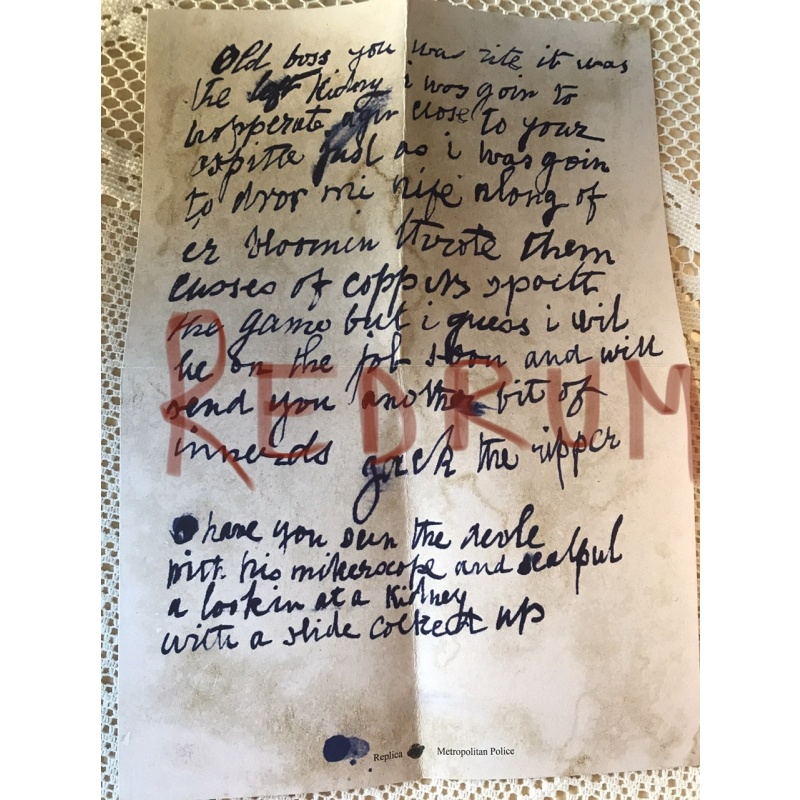 Old boss you was rite it was
the left kidny i was goin to
hopperate agin close to your
ospitle just as i was goin
to dror mi nife along of
er bloomin throte them
cusses of coppers spoilt
the game but i guess i wil
be on the job soon and will
send you another bit of
innerds Jack the ripper
REDRUM
O have you seen the devle
with his mikerscope and scalpul
a lookin at a Kidney
with a slide cocked up
Replica Metropolitan Police